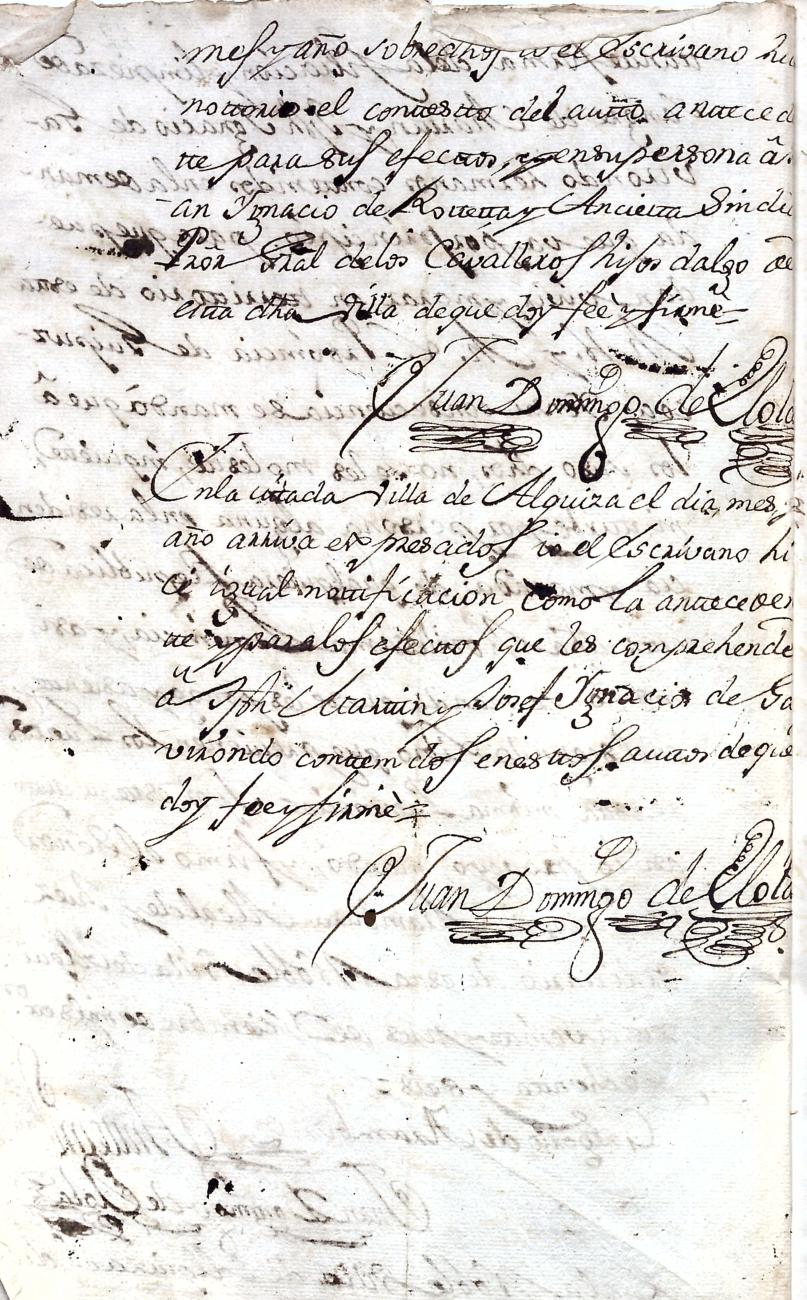 mes y año sobredhos io el Escrivano hi
nottorio el contestto del autto anteced
tte para sus efectos, y en su persona â
an Ygnacio de Rotteta y Ancietta Sindi
Pror Gral delos Cavalleros hijos dalgo de
esta dha Villa de que doy fee y firmè=
Juan Domingo de Elola
Enla citada Villa de Alquiza el dia, mes, y
año arriva expresados io el Escrivano hi
cê igual nottificacion como la anteceden
tte y para los efecttos que les comprehende
â Jph Martin y Josef Ygnacio de Ga
virondo conttenidos en esttos auttos de que
doy fee y firmè=
Juan Domingo de Elola